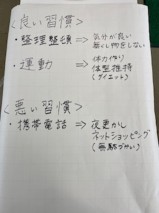 〈良い習慣〉
・整理整頓 ⇒ 気分が良い
無くし物をしない
・運動 ⇒ 体力作り
体型維持
(ダイエット)
〈悪い習慣〉
・携帯電話 ⇒ 夜更かし
ネットショッピング
(無駄づかい)